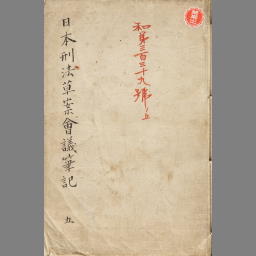 和第三百三十九號ノ五
日本刑法草案會議筆記
五